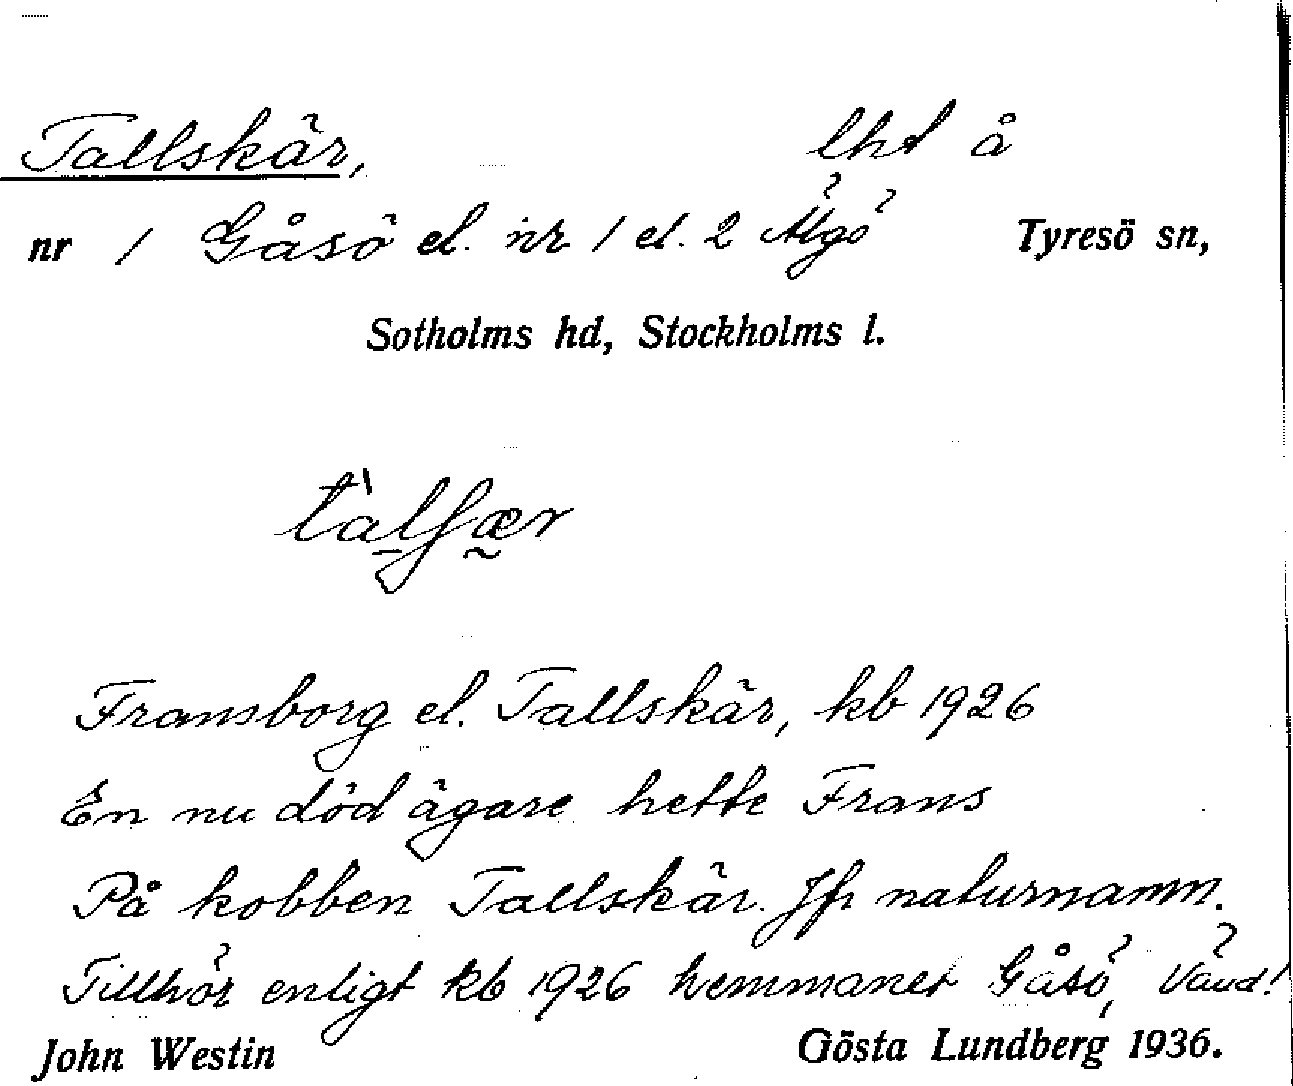 Tallskär, lht å
nr 1 Gåsö el. nr 1 el. 2 Älgö Tyresö sn,
Sotholms hd, Stockholms l.
Fransborg el. Tallskär, kb 1926
En nu död ägare hette Frans
På kobben Tallskär. Jfr naturnamn.
Tillhör enligt kb 1926 hemmanet Gåsö, Vänd!
John Westin Gösta Lundberg 1936.